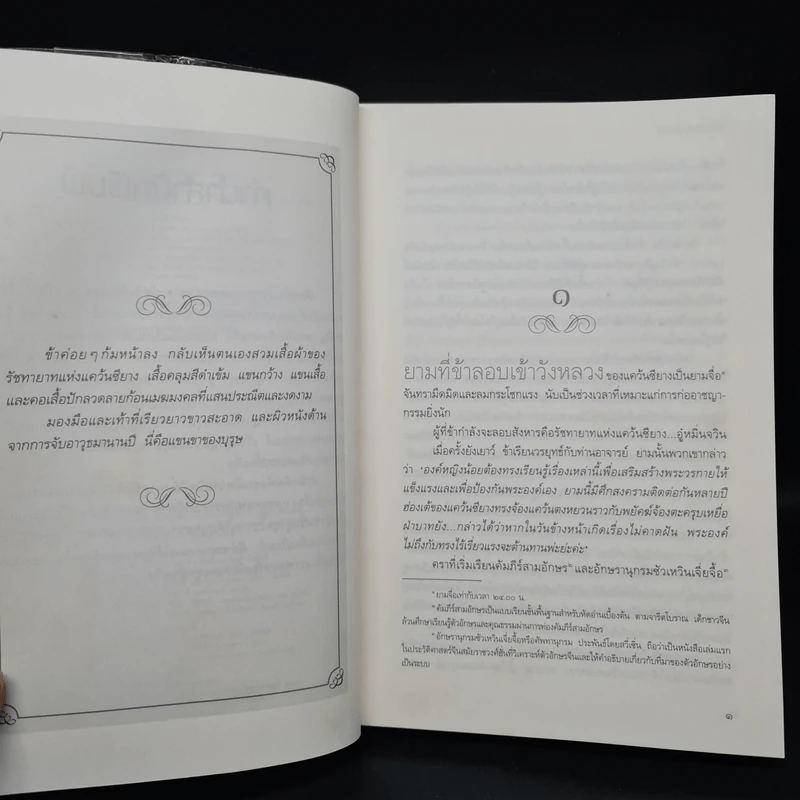 ข้าค่อย ๆ ก้มหน้าลง กลับเห็นตนเองสวมเสื้อผ้าของ
รัชทายาทแห่งแคว้นซียาง เสื้อคลุมสีดำเข้ม แขนกว้าง แขนเสื้อ
และคอเสื้อปักลวดลายก้อนเมฆมงคลที่แสนประณีตและงดงาม
มองมือและเท้าที่เรียวยาวขาวสะอาด และผิวหนังด้าน
จากการจับอาวุธมานานปี นี่คือแขนขาของบุรุษ
๑
ยามที่ข้าลอบเข้าวังหลวงของแคว้นซียางเป็นยามจื่อ
จันทรามืดมิดและลมกระโชกแรง นับเป็นช่วงเวลาที่เหมาะแก่การก่ออาชญา-
กรรมยิ่งนัก
ผู้ที่ข้ากำลังจะลอบสังหารคือรัชทายาทแห่งแคว้นซียาง...อู๋หมิ่นจวิน
เมื่อครั้งยังเยาว์ ข้าเรียนวรยุทธ์กับท่านอาจารย์ ยามนั้นพวกเขากล่าว
ว่า ‘องค์หญิงน้อยต้องทรงเรียนรู้เรื่องเหล่านี้เพื่อเสริมสร้างพระวรกายให้
แข็งแรงและเพื่อป้องกันพระองค์เอง ยามนี้มีศึกสงครามติดต่อกันหลายปี
ฮ่องเต้ของแคว้นซียางทรงจ้องแคว้นตงหยวนราวกับพยัคฆ์จ้องตะครุบเหยื่อ
ฝ่าบาทยัง...กล่าวได้ว่าหากในวันข้างหน้าเกิดเรื่องไม่คาดฝัน พระองค์
ไม่ถึงกับทรงไร้เรี่ยวแรงจะต้านทานพ่ะย่ะค่ะ’
คราที่เริ่มเรียนคัมภีร์สามอักษร และอักษรานุกรมซัวเหวินเจี่ยจื้อ
ยามจื่อเท่ากับเวลา ๒๔.๐๐ น.
คัมภีร์สามอักษรเป็นแบบเรียนขั้นพื้นฐานสำหรับหัดอ่านเบื้องต้น ตามจารีตโบราณ เด็กชาวจีน
ล้วนศึกษาเรียนรู้ตัวอักษรและคุณธรรมผ่านการท่องคัมภีร์สามอักษร
อักษรานุกรมซัวเหวินเจี่ยจื้อหรือศัพทานุกรม ประพันธ์โดยสวี่เซิ่น ถือว่าเป็นหนังสือเล่มแรก
ในประวัติศาสตร์จีนสมัยราชวงศ์ฮั่นที่วิเคราะห์ตัวอักษรจีนและให้คำอธิบายเกี่ยวกับที่มาของตัวอักษรอย่าง
เป็นระบบ
๑